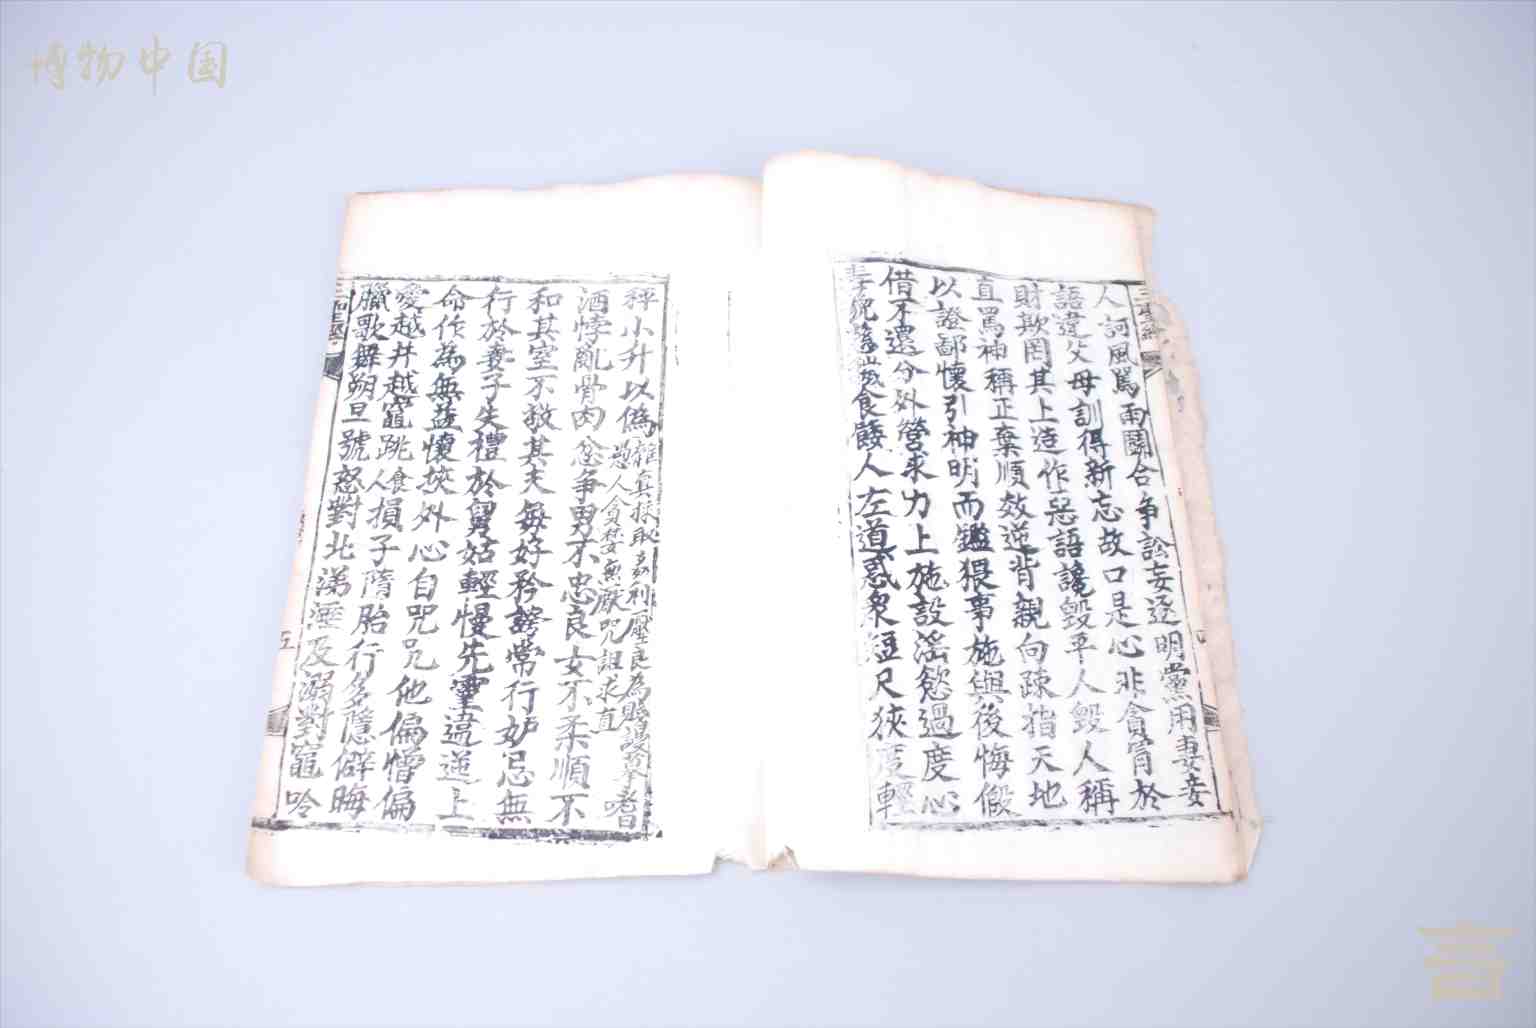 博物中国
三聖經
人訶風罵雨鬪合争訟妄逐明黨用妻妾
語違父母訓得新忘故口是心非貪冐於
財欺罔其上造作惡語讒毀平人毀人稱
直罵神稱正棄順效逆背親向踈指天地
以證鄙懷引神明而鑑猥事施與後悔假
借不還分外營求力上施設滛慾過度心
毒貌慈穢食餧人左道惑衆短尺狹度輕
秤小升以偽雜真採取姦利壓良為賤謾摹愚人貪婪無厭咒詛求直嗜
酒悖亂骨肉忿争男不忠良女不柔順不
和其室不敬其夫每好矜誇常行妒忌無
行於妻子失禮於舅姑輕慢先靈違逆上
命作為無益懷挾外心自咒咒他偏憎偏
愛越井越竈跳食人損子隋胎行多隱僻晦
臘歌舞朔旦號怒對北涕唾及溺對竈吟
三聖經
五